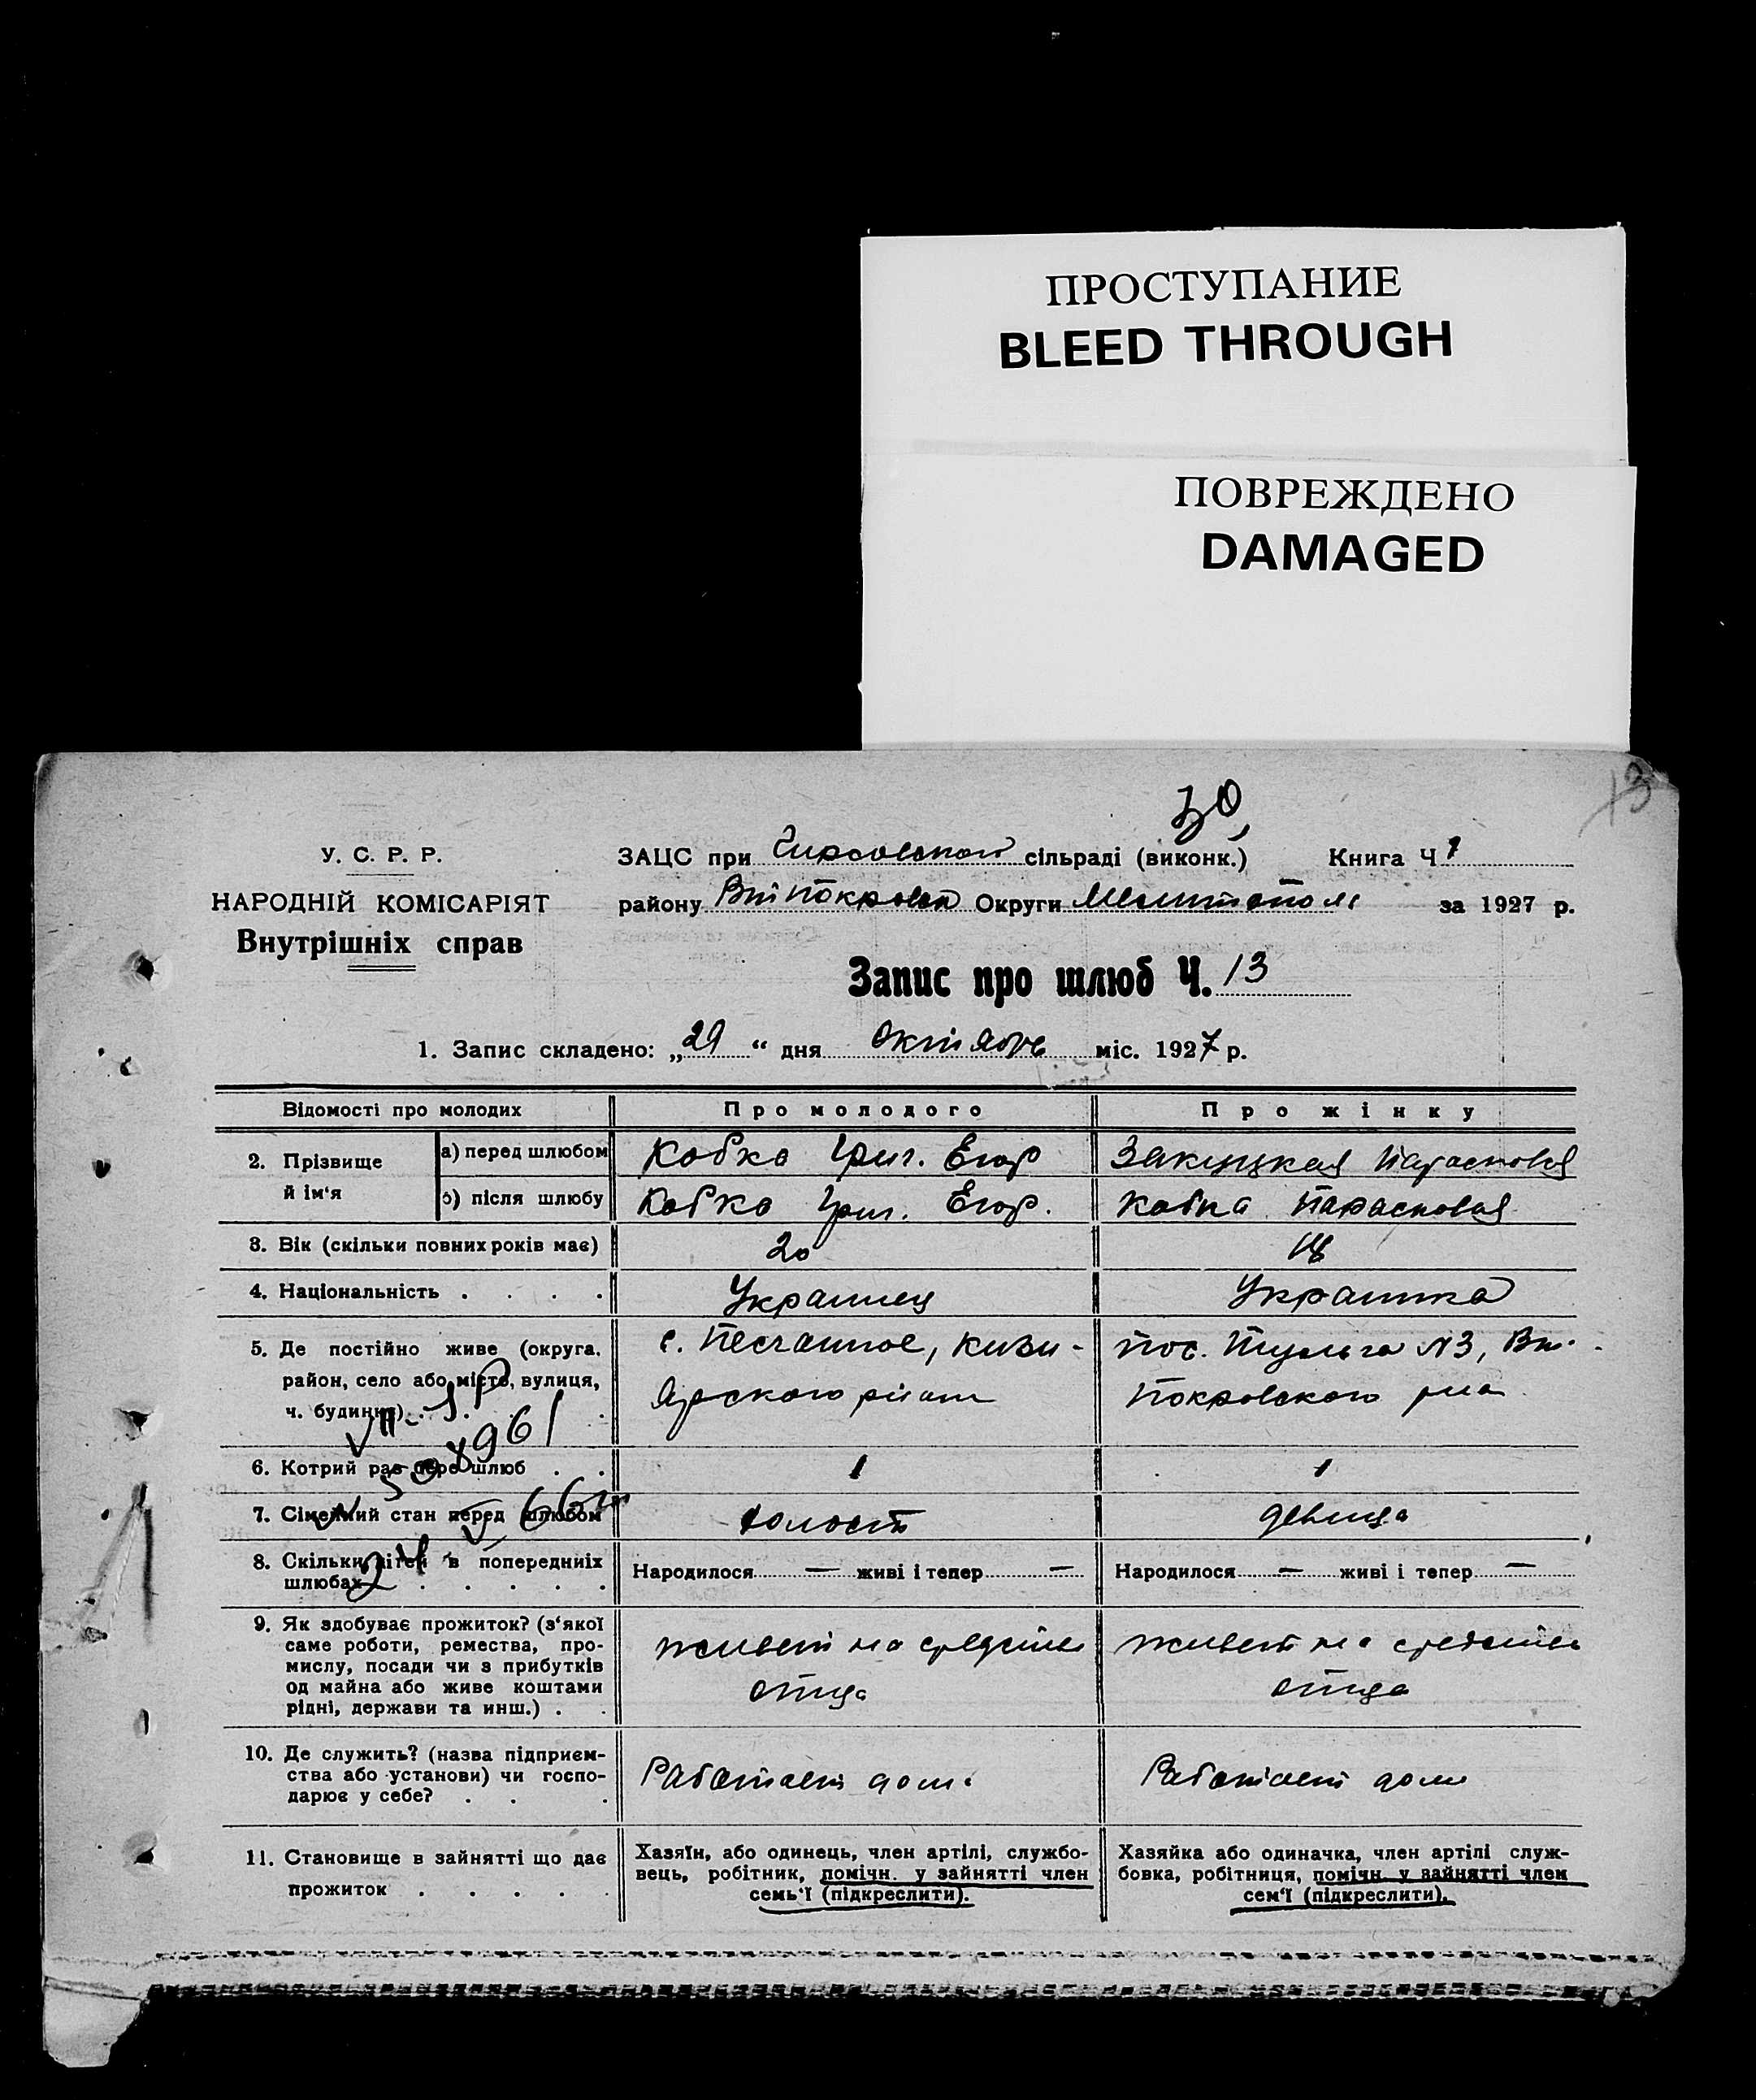 ПРОСТУПАНИЕ
BLEED THROUGH
ПОВРЕЖДЕНО
DAMAGED
30
13
У. С. Р. Р.
НАРОДНІЙ КОМІСАРІЯТ
Внутрішніх справ
ЗАЦС при сільраді (виконк.) Книга Ч 1
району Втпокровск Округи Мелитополь за 1927 р.
Запис про шлюб Ч. 13
1. Запис складено: „29“ дня октябрь міс. 1927 р.
Відомості про молодих Про молодого Про жінку
2. Прізвище й ім'я
а) перед шлюбом Кобка Григ. Егор Парасковья
б) після шлюбу Кобка Григ. Егор. Кобка Парасковья
3. Вік (скільки повних років має) 20 18
4. Національність . . . . Украинец Украинка
5. Де постійно живе (округа,
район, село або місто, вулиця,
ч. будинку) . .
с. Песчанное, Кизи-
Ярского
пос. N3, Вт.
Покровского
961
6. Котрий раз бере шлюб . . 1 1
7. Сімейний стан перед шлюбом холост девица
8. Скільки дітей в попередніх
шлюбах . . . . .
Народилося — живі і тепер — Народилося — живі і тепер —
9. Як здобуває прожиток? (з'якої
саме роботи, ремества, про-
мислу, посади чи з прибутків
од майна або живе коштами
рідні, держави та инш.) . .
живет на средства
отца
живет на средства
отца
10. Де служить? (назва підприєм-
ства або установи) чи госпо-
дарює у себе? . . .
Работает дома
Работает дома
11. Становище в зайнятті що дає
прожиток . . . . .
Хазяїн, або одинець, член артілі, службо-
вець, робітник, помічн. у зайнятті член
семь'ї (підкреслити).
Хазяйка або одиначка, член артілі служ-
бовка, робітниця, помічн. у зайнятті член
сем'ї (підкреслити).